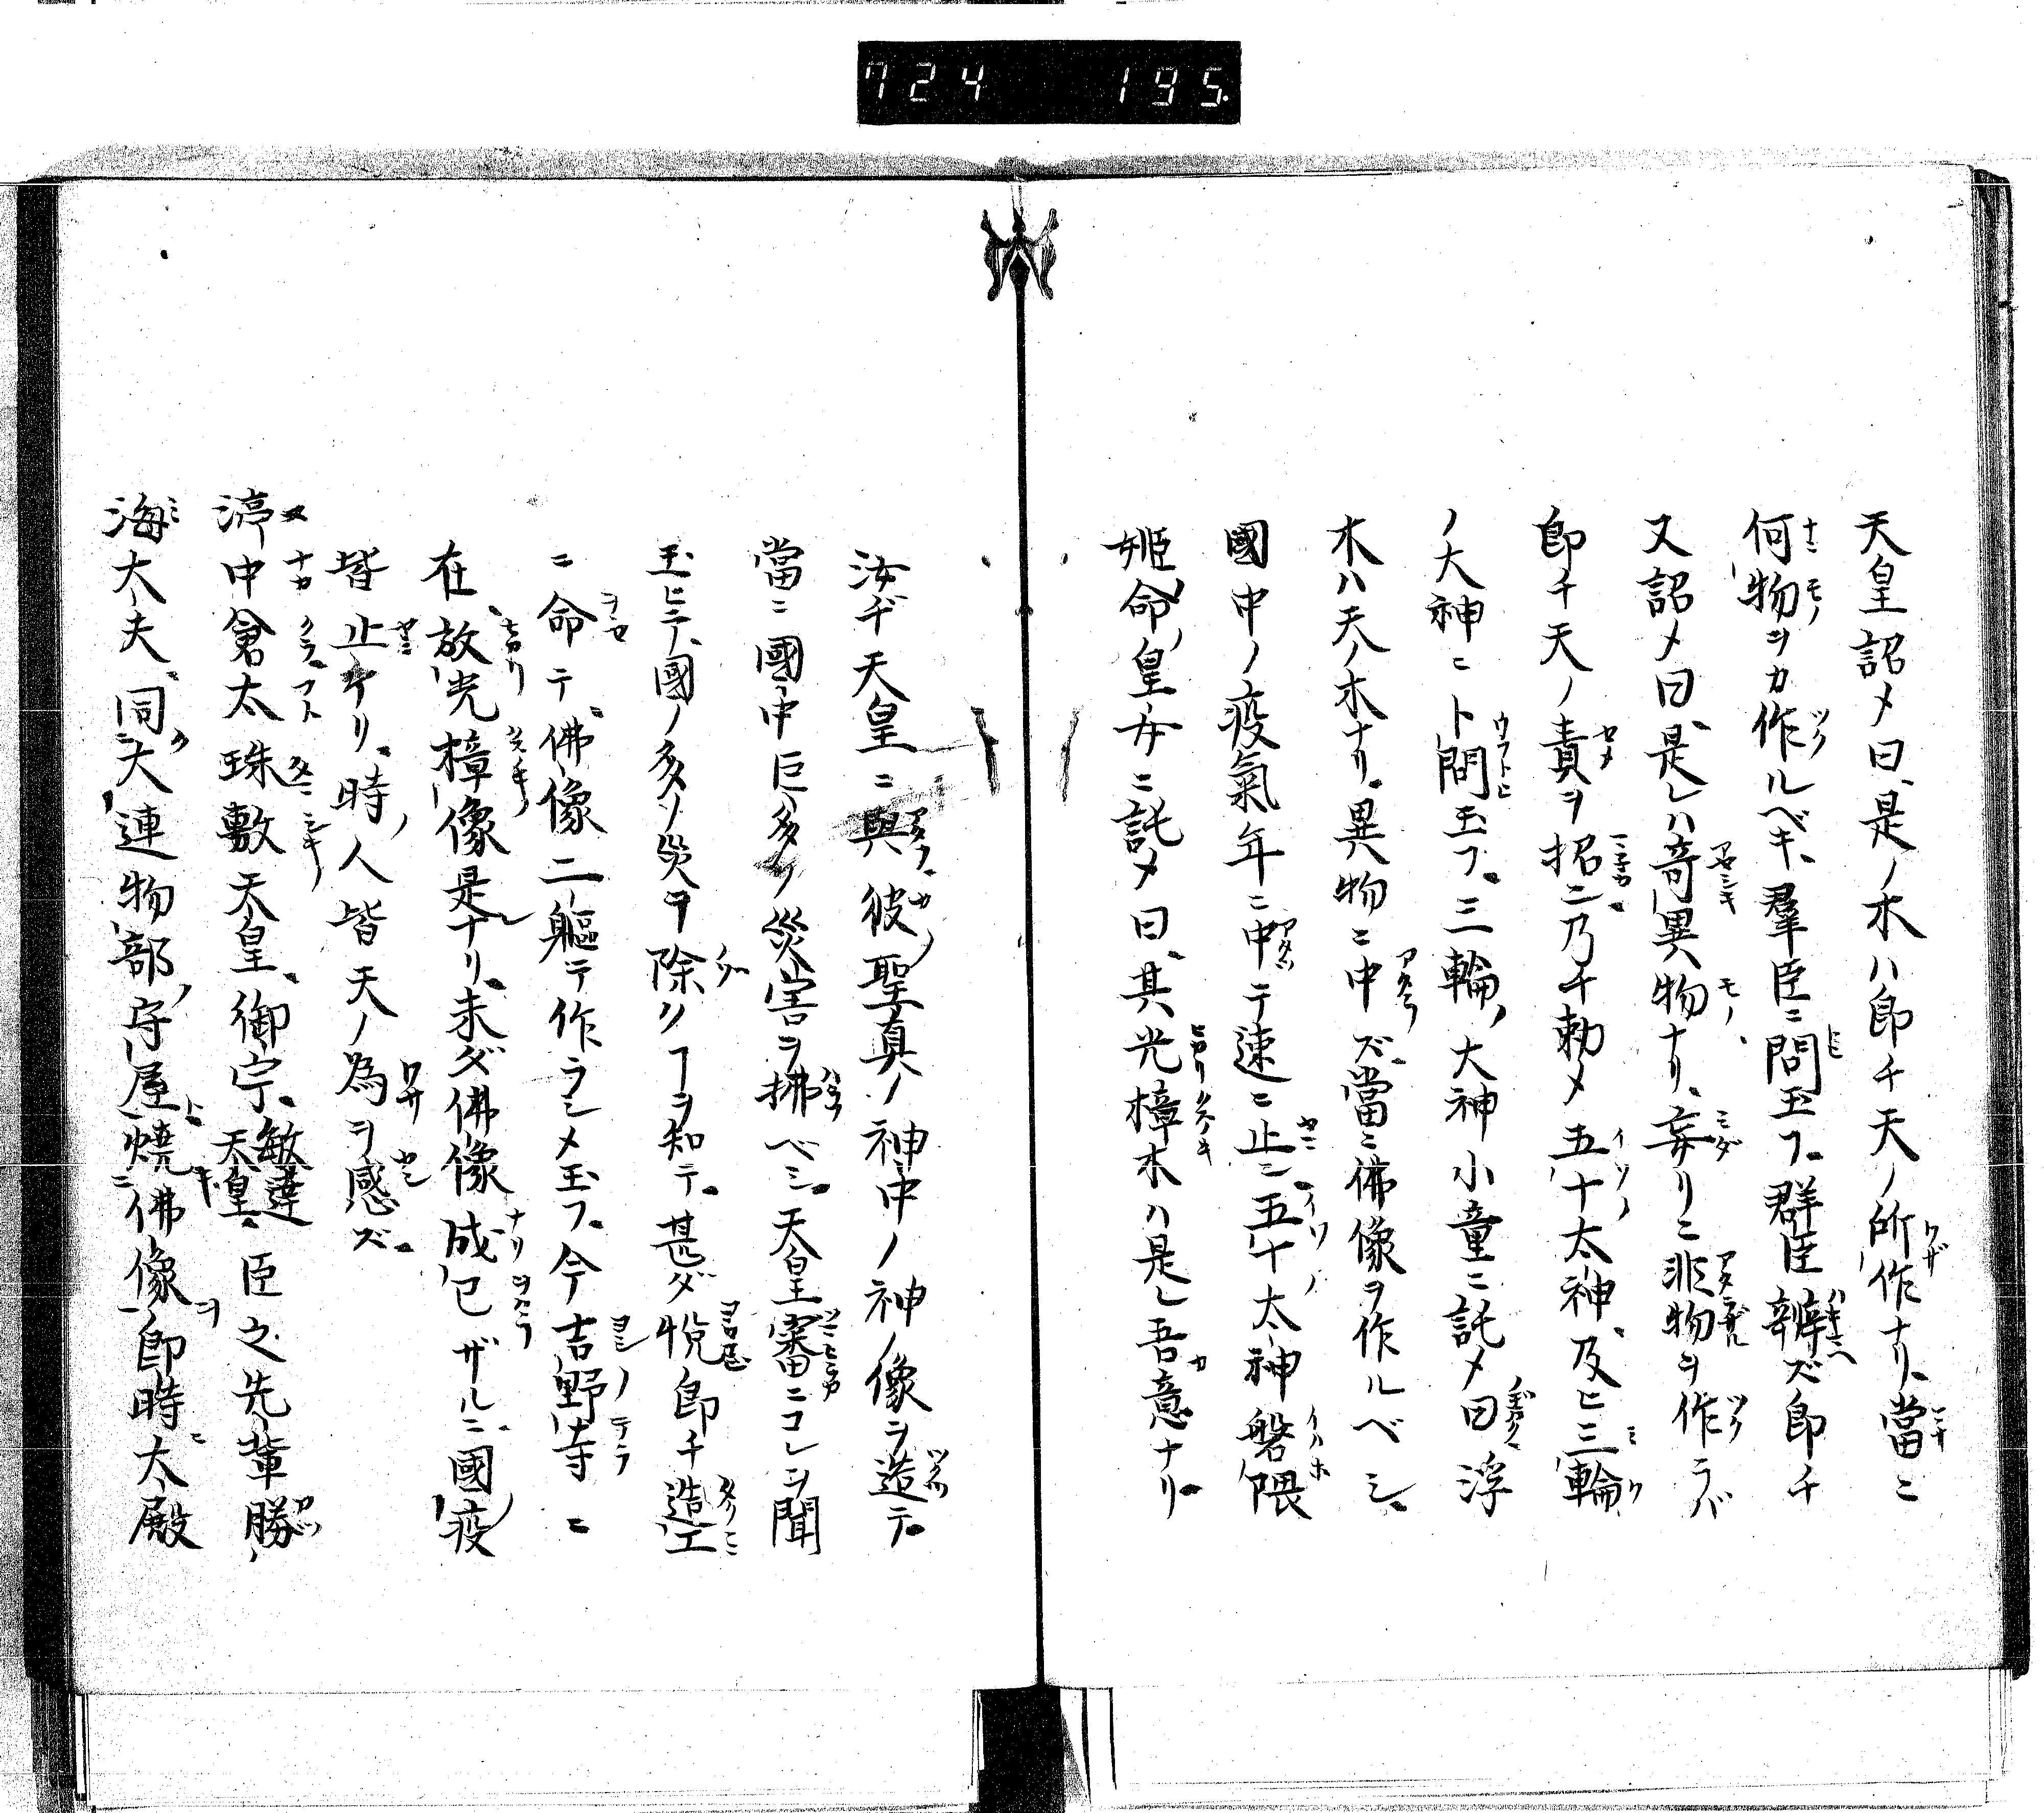 724 195.
天皇詔メ曰、是ノ木ハ即チ天ノ所作ナリ、當ニ
何物ヲカ作ルベキ、羣臣ニ問玉フ、群臣辨ズ即チ
又詔メ曰、是レハ竒異物ナリ、妄リニ非物ヲ作ラバ
即チ天ノ責ヲ招ニ乃チ勅メ五十太神、及ヒ三輪
ノ大神ニト問玉フ、三輪ノ大神小童ニ託メ曰浮
木ハ天ノ木ナリ、異物ニ中ズ當ニ佛像ヲ作ルベシ、
國中ノ疫氣年ニ中テ速ニ止ン五十太神磐隈
姫命ノ皇女ニ託メ曰、其光樟木ハ是レ吾意ナリ
汝ヂ天皇ニ與フ彼ノ聖真ノ神中ノ神ノ像ヲ造テ
當ニ國中巨多ノ災害ヲ拂ベシ、天皇審ニコレヲ聞
玉ヒテ、國ノ多ノ災ヲ除クヿヲ知テ、甚ダ悦即チ造工
ニ命テ、佛像二軀テ作ラシメ玉フ、今吉野寺ニ
在放光樟像是ナリ、未ダ佛像成已ザルニ、國ノ疫
皆止ケリ、時ノ人皆天ノ為ヲ感ズ、
渟中倉太珠敷天皇、御宇、敏達天皇、臣之先輩勝
海大夫、同ク大連物部ノ守屋ト燒ニ佛像ヲ一即時ニ大殿